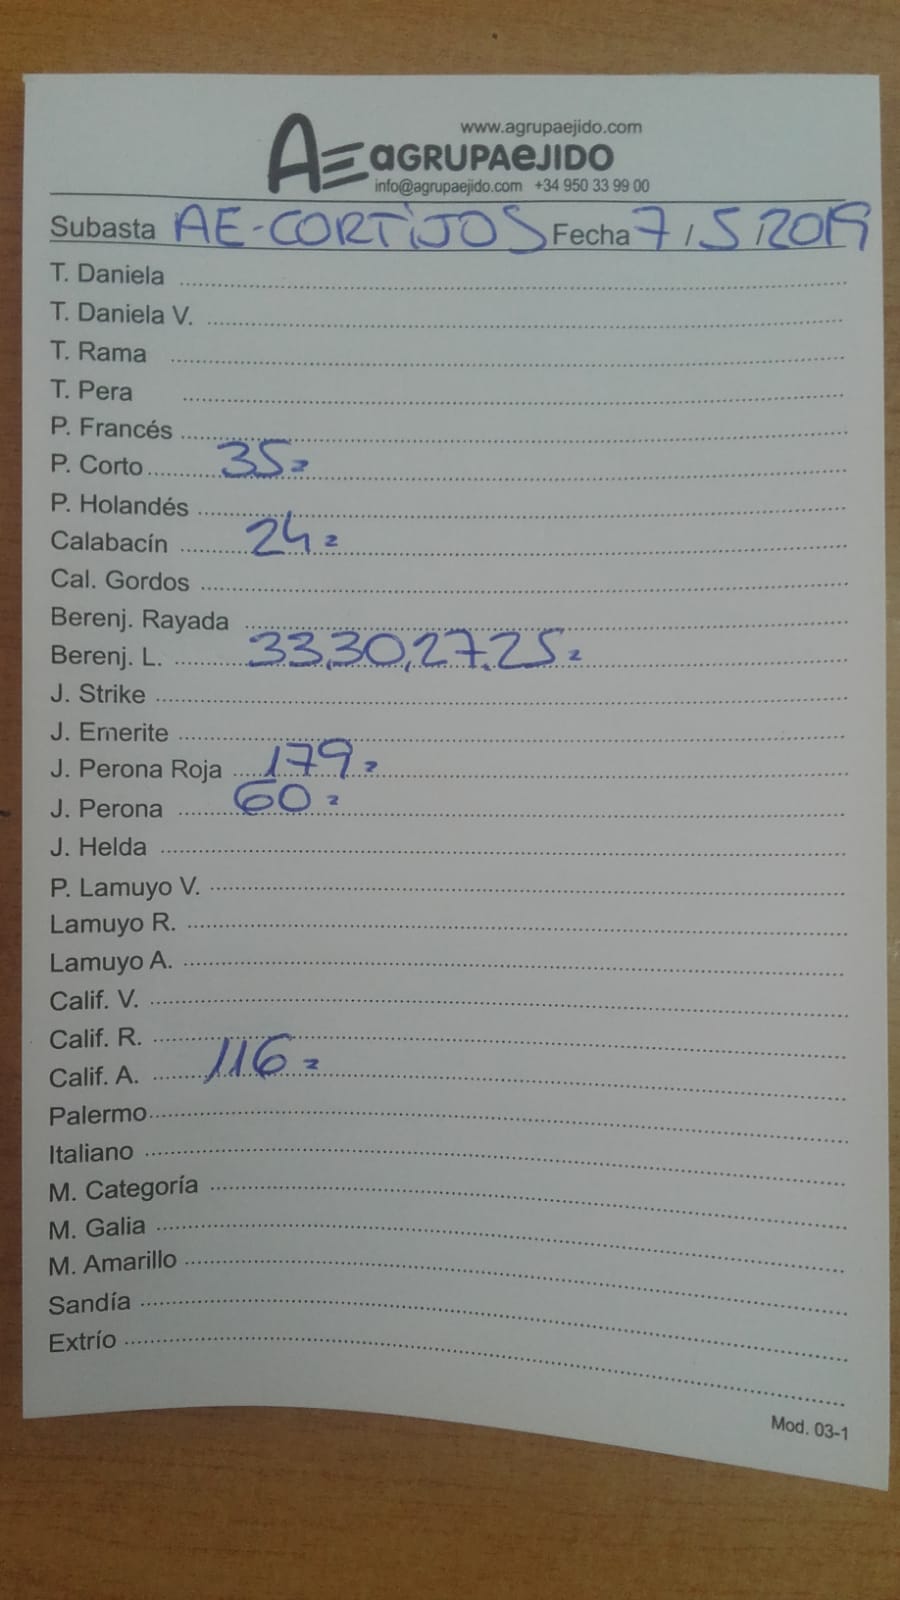 www.agrupaejido.com
AE aGRUPAeJIDO
info@agrupaejido.com +34 950 33 99 00
Subasta AE-CORTiJOS Fecha 7/5/2019
T. Daniela
T. Daniela V.
T. Rama
T. Pera
P. Francés
P. Corto 35=
P. Holandés
Calabacín 24=
Cal. Gordos
Berenj. Rayada
Berenj. L. 33,30,27,25=
J. Strike
J. Emerite
J. Perona Roja 179=
J. Perona 60=
J. Helda
P. Lamuyo V.
Lamuyo R.
Lamuyo A.
Calif. V.
Calif. R.
Calif. A. 116=
Palermo
Italiano
M. Categoría
M. Galia
M. Amarillo
Sandía
Extrío
Mod. 03-1